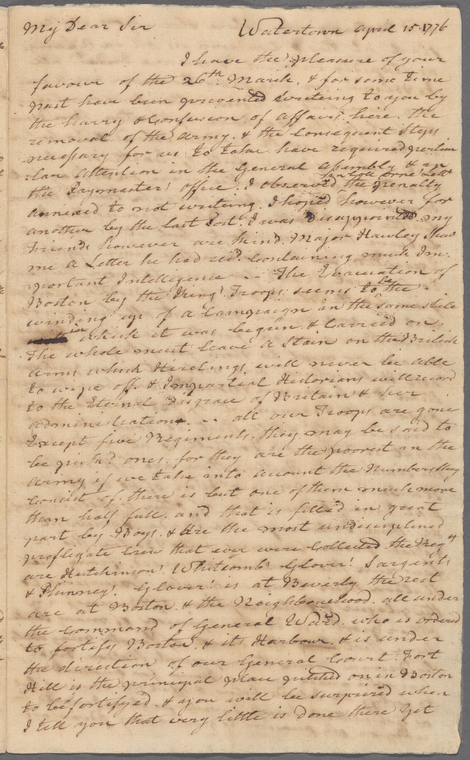 My Dear Sir Watertown April 15. 1776
I have the pleasure of your
favour of the 26th March, & for some time
past have been prevented writeing to you by
the hurry & Confusion of Affairs here. the
removal of the Army, & the Consequent Steps
necessary for us to take have required perticu
lar Attention in the General Assembly & an
the Paymasters Office. I observed the penalty
in Coll Orne's Lettr
annexed to not writing. I hoped however for
another by the last Post. I was disappointed. my
Friends however are kind. Major Hawley shew
me a Letter he had recd. Containing much Im-
portant Intelligence -- The Evacuation of
Boston by the King's Troops seems to be the
winding up of a Campaign in the same stile
in which it was begun & Carried on.
The whole must leave a Stain on the British
Arms which Hirelings will never be able
to wipe off. & Impartial Historians will record
to the Eternal disgrace of Britain & her
administration. -- all our Troops are gone
Except five Regiments. they may be said to
be pick'd ones, for they are the poorest in the
Army if we take into account the Numbers they
Consist of. there is but one of them much more
than half full. and that is filled in great
part by Boys. & are the most undisciplined
profligate Crew that ever were Collected. the Regts
are Hutchinson's Whitcomb's Glover's Sargents
& Phinney's. Glover's is at Beverly the rest
are at Boston & the Neighbourhood. all under
the Command of General Ward. who is ordered
to fortify Boston & its Harbour, & is under
the direction of our General Court. Fort
Hill is the principal place pitched on in Boston
to be fortifyed. & you will be surprized when
I tell you that very little is done there yet